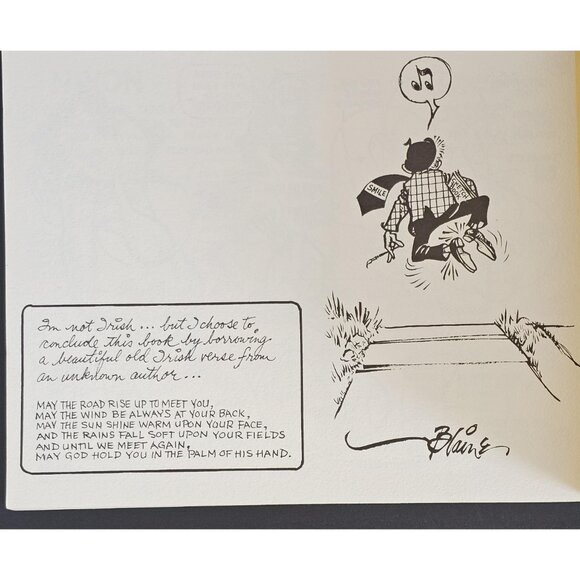 SMILE
SKETCH
BOOK
Im not Irish... but I choose to
conclude this book by borrowing
a beautiful old Irish verse from
an unknown author...
MAY THE ROAD RISE UP TO MEET YOU,
MAY THE WIND BE ALWAYS AT YOUR BACK,
MAY THE SUN SHINE WARM UPON YOUR FACE,
AND THE RAINS FALL SOFT UPON YOUR FIELDS
AND UNTIL WE MEET AGAIN,
MAY GOD HOLD YOU IN THE PALM OF HIS HAND.
Blaine